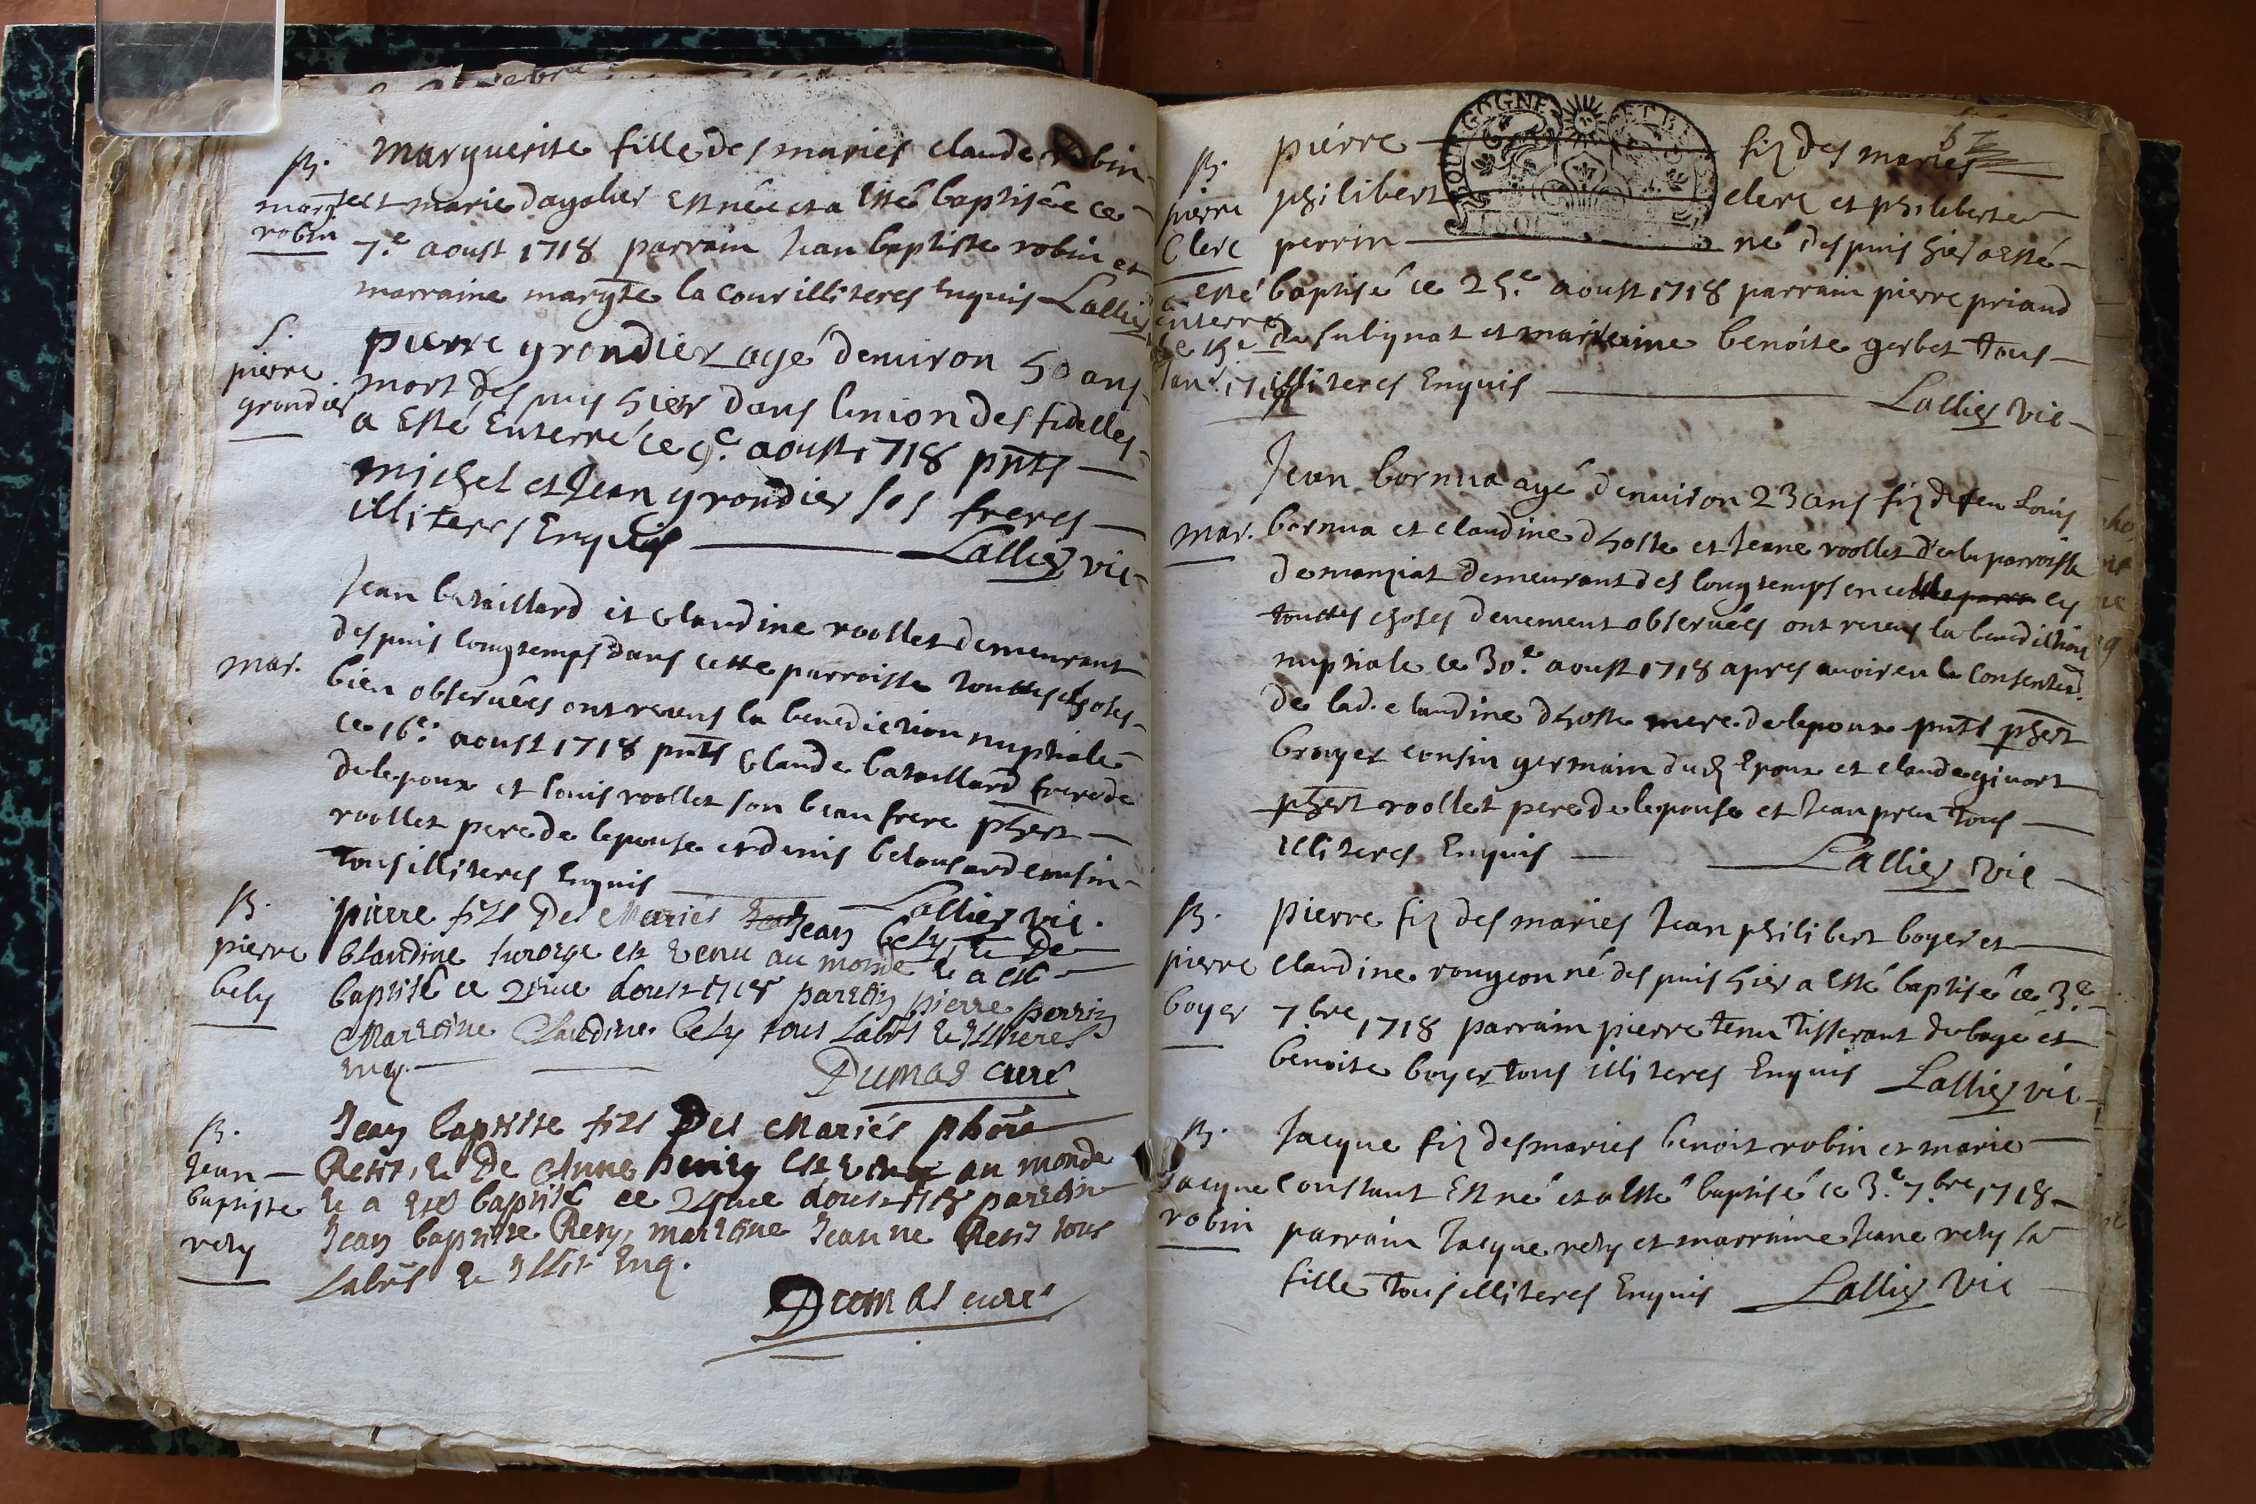 B.
margte
robin
Marguerite fille des maries claude robin
et marie dagalier est née et a esté baptisée ce
7.e aoust 1718 parrain Jean baptiste robin et
marraine margte la cour illiteres Enquis Lallier
S.
pierre
grondier
pierre grondier agé denviron 50 ans
mort des puis hier dans lunion des fidelles
a Esté Enterré ce 9.e aoust 1718 pnts
michel et Jean grondier ses freres
illiteres Enquis Lallier vic
mar.
Jean bataillard et Claudine roollet demeurant
des puis longtemps dans cette parroisse touttes choses
bien observées ont receus la benediction nuptiale
ce 16.e aoust 1718 pnts Claude bataillard frere de
de lepoux et louis roollet son beau frere phert
roollet pere de lepouse et denis belousard cousin
tous illiteres Enquis
Lallier vic.
B.
pierre
bely
pierre fils Des Mariés Jean bely, et De
Claudine est venu au monde et a esté
baptisé ce Aoust 1718 parrain pierre perrin
Marraine Claudine bely tous Labrs et Illiteres
Enq.
Dumas curé
B.
Jean
baptiste
rety
Jean baptiste fils Des Mariés
Rety, et De Anne est venu au monde
et a esté baptisé ce Aoust 1718 parrain
Jean baptiste Rety, marraine Jeanne Rety tous
Labrs et Illit Enq.
Dumas curé
67
B.
pierre
Clerc
a esté
enterré
le 15.e
Janr. 17
BOURGOGNE ET BRESSE
pierre fiz des maries
philibert clerc et philiberte
perrin né des puis hier a Esté
baptisé ce 25.e aoust 1718 parrain pierre priand
de sulignat et marraine benoite gerbet tous
illiteres Enquis
Lallier vic
mar.
Jean bornua agé denviron 23 ans fiz de feu Louis
bornua et claudine dhoste et Jeane roollet de la parroisse
de manziat demeurant des longtemps en cette
touttes choses deuement observées ont receus la benediction
nuptiale ce 30.e aoust 1718 apres avoir eu le consentemt.
de lad. claudine dhoste mere de lepoux pnts phert
broyer cousin germain dud Epoux et claude givort
phert roollet pere de lepouse et Jean preu tous
illiteres Enquis Lallier Vic
B.
pierre
boyer
pierre fiz des maries Jean philibert boyer et
claudine rougeon né des puis hier a Esté baptisé ce 3.e
7.bre 1718 parrain pierre tenu Tisserant de bagé et
benoite boyer tous illiteres Enquis Lallier vic
B.
Jacque
robin
Jacque fiz des maries benoit robin et marie
Constant Est né et a Esté baptisé ce 3.e 7.bre 1718
parrain Jacque rety et marraine Jeane rety sa
fille tous illiteres Enquis Lallier Vic